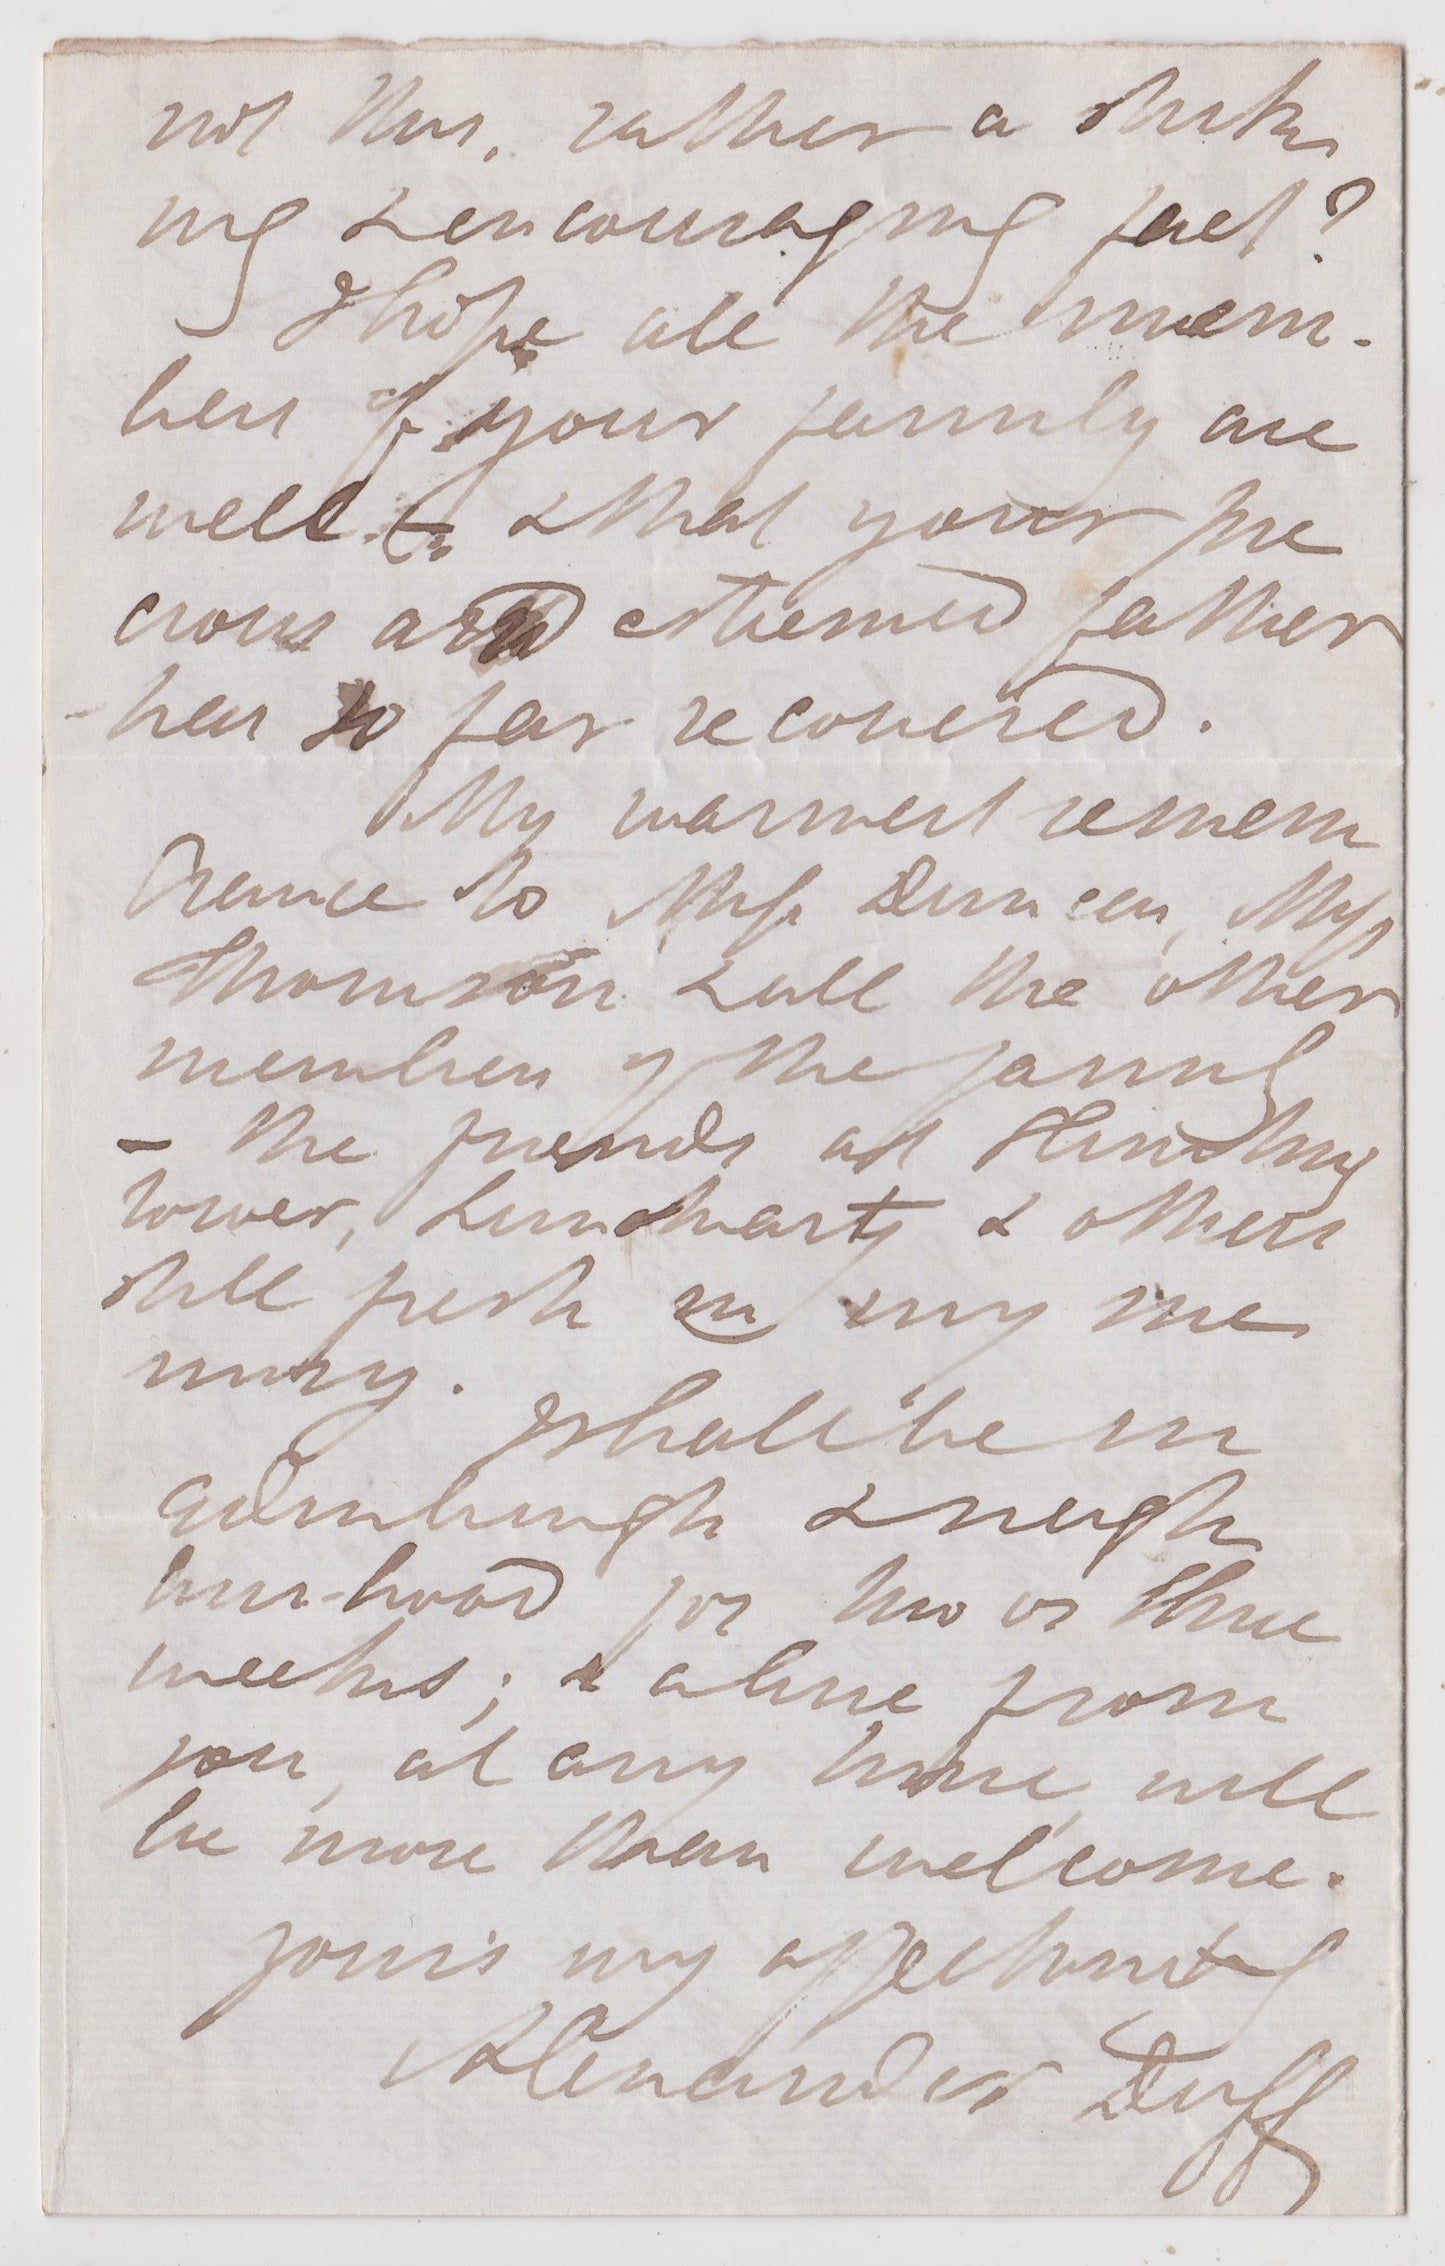 not this, rather a strik
ing & encouraging fact?
I hope all the mem-
bers of your family are
well - & that your pre
cious and esteemed father
has so far recovered.
My warmest remem
brance to Miss Duncan, Miss
Thomson & all the other
members of the family
- the friends at
tower, & others
still fresh in my me
mory.
I shall be in
Edinburgh & neigh
bour-hood for two or three
weeks; & a line from
you, at any time, will
be more than welcome.
Yours my affectionately
Alexander Duff